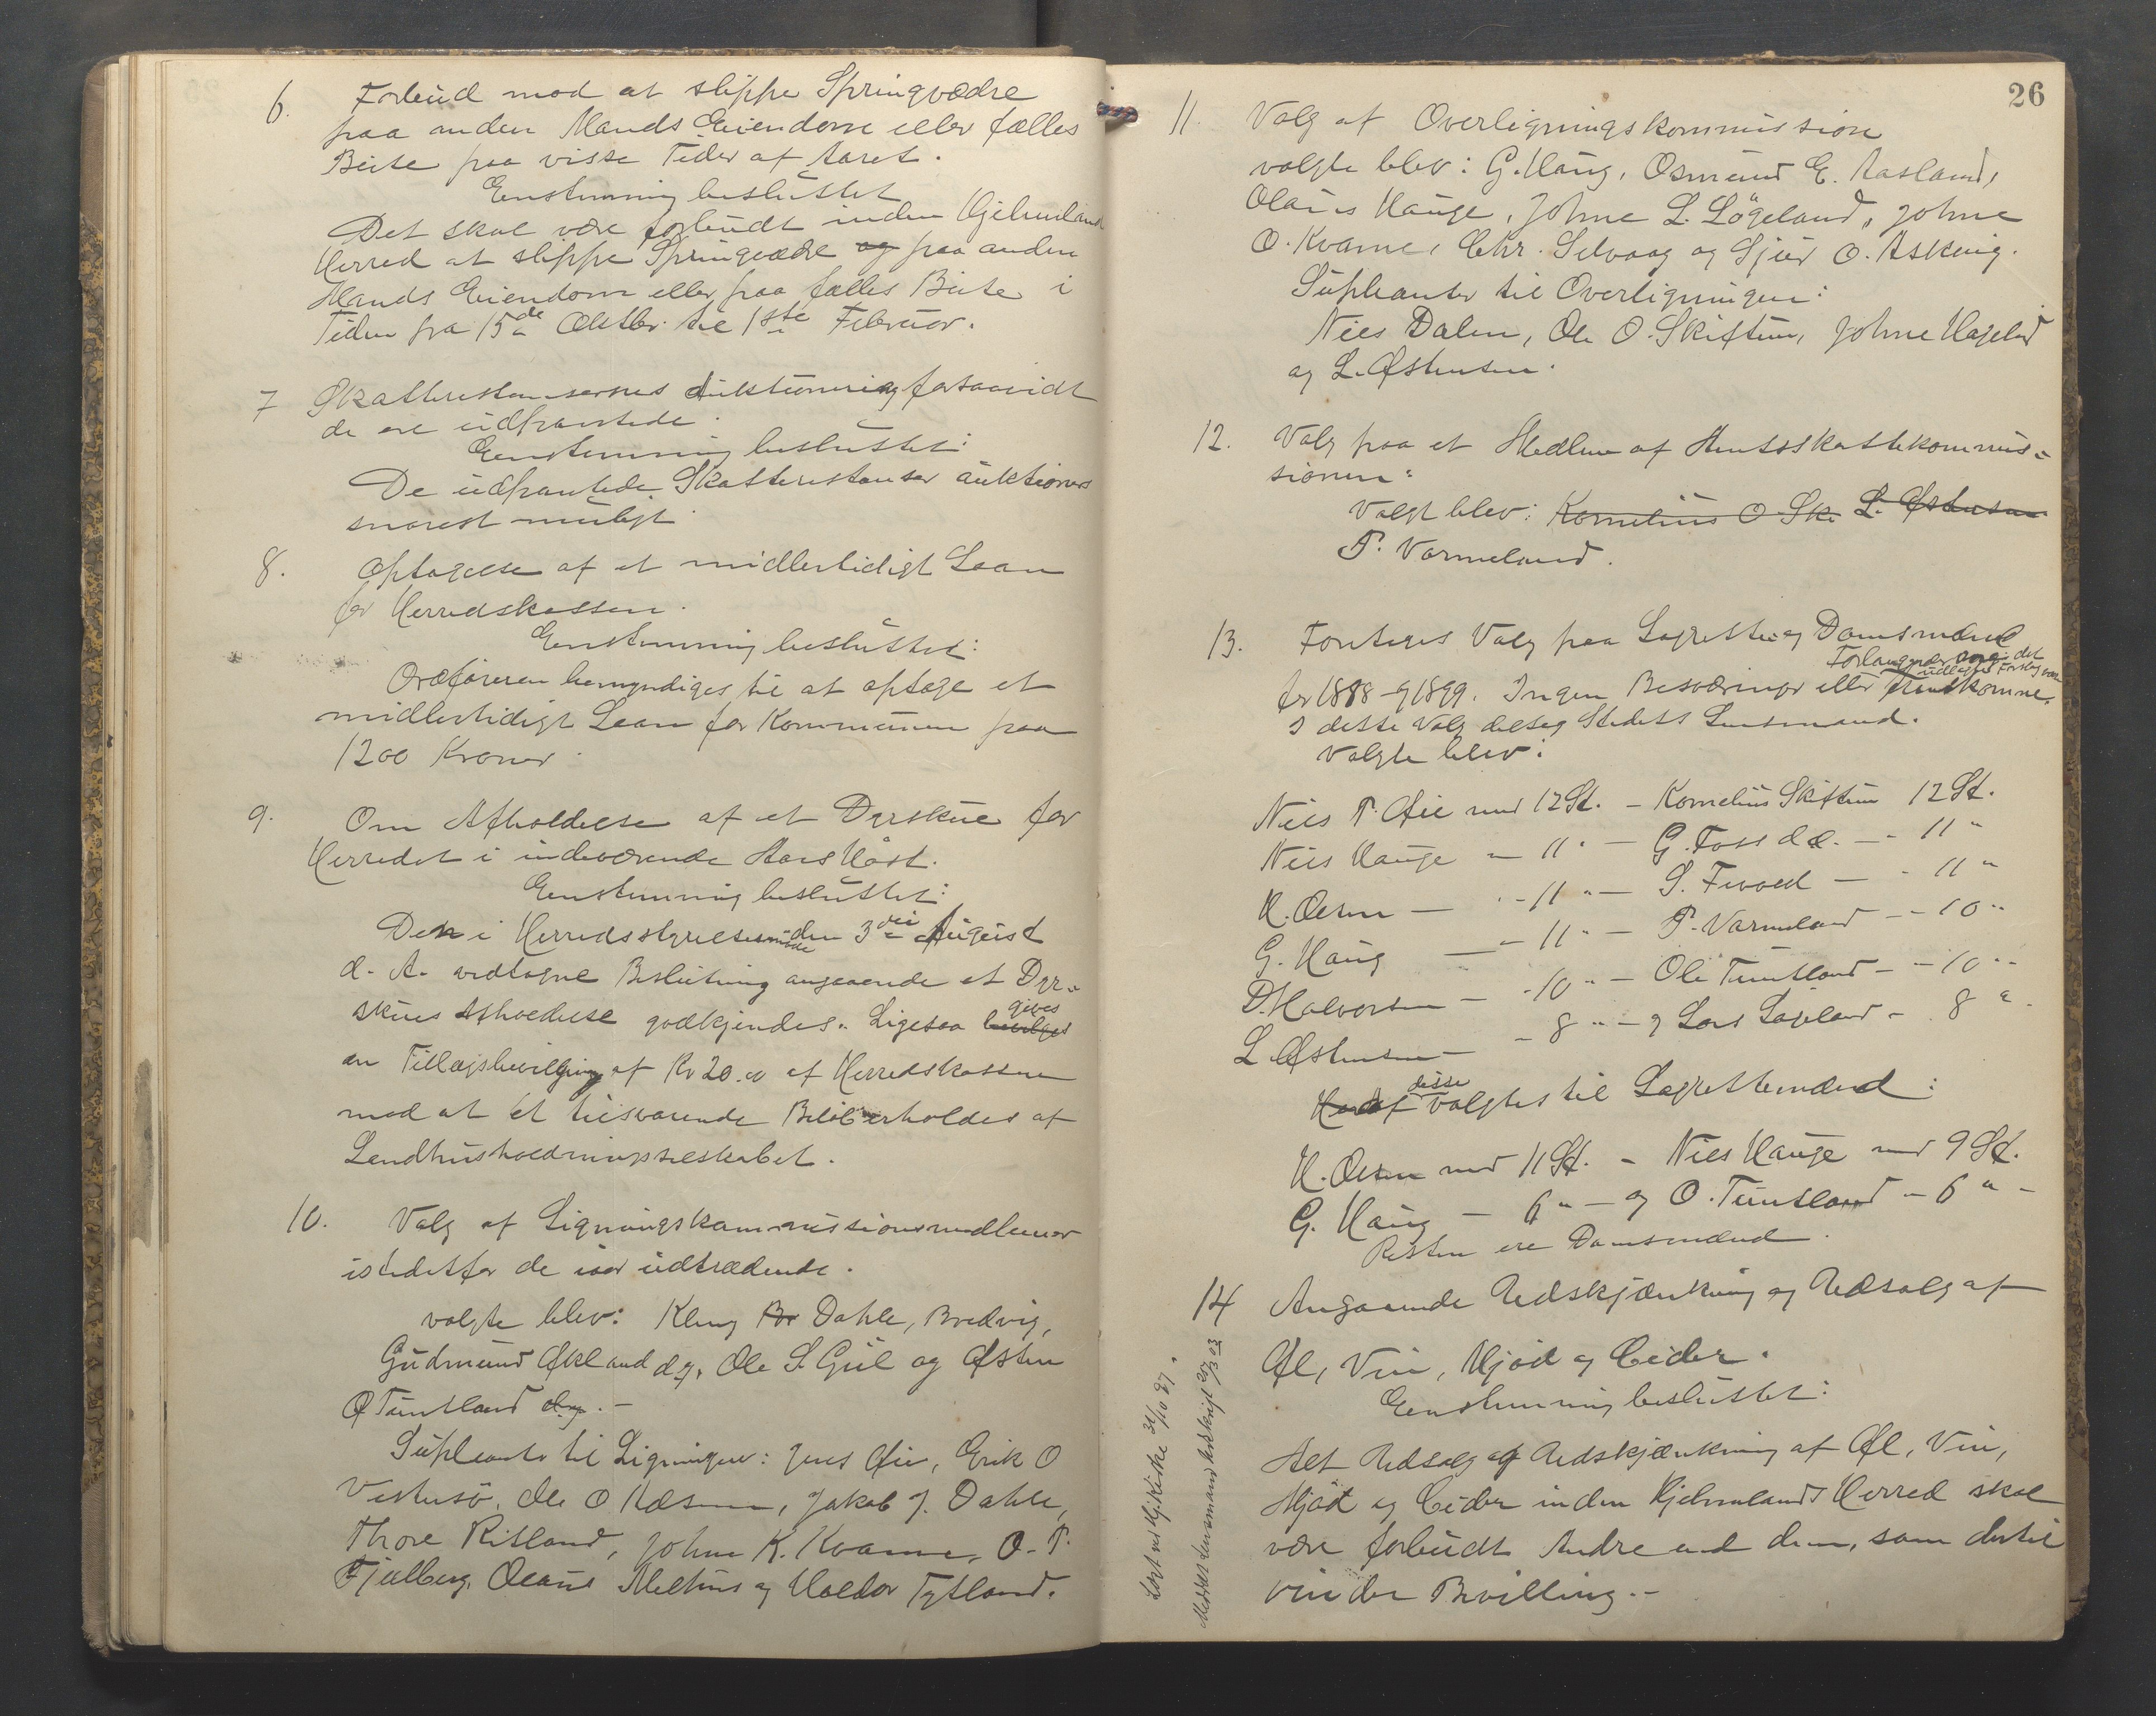 6. Forbud mod at slippe Springvædre
paa anden Mands Eiendom eller fælles
Beite paa visse Tider af Aaret.
Eenstemmig besluttet
Det skal være forbudt inden Hjelmelands
Herred at slippe Springvædre og paa anden
Mands Eiendom eller paa fælles Beite i
Tiden fra 15de Oktbr. til 1ste Februar.
7 Skatterestansernes auktionering forsaavidt
de ere udpantede.
Eenstemmig besluttet:
De udpantede Skatterestanser auktioneres
snarest muligt.
8. Optagelse af et midlertidigt Laan
for Herredskassen.
Eenstemmig besluttet:
Ordføreren bemyndiges til at optage et
midlertidigt Laan for Kommunen paa
1200 Kroner.
9. Om Afholdelse af et Dyrskue for
Herredet i indeværende Aars Høst.
Eenstemmig besluttet:
Den i Herredsstyrelsesmøde den 3die August
d. A. vedtagne Beslutning angaaende et Dyr-
skues Afholdelse godkjendes. Ligesaa bevilges gives
en Tillægsbevilgning af Kr 20.00 af Herredskassen
mod at et tilsvarende Beløb erholdes af
Landhusholdningsselskabet.
10. Valg af Ligningskommissionsmedlemmer
istedetfor de iaar udtrædende.
valgte blev: Kleng Br Dahle, Bredvig,
Gudmund Økland d.y., Ole S. Giil og Østen
O Tuntland d.y. -
Supleanter til Ligningen: Jens Øie, Erik O
Vestersø, Ole O Næsse, Jakob J. Dahle,
Thore Ritland, Johne K. Kvame, O. T.
Fjelberg, Olaus Meltun og Haldor Tytland.
26
11. Valg af Overligningskommission
valgte blev: G. Haug, Osmund E. Aasland,
Olaus Hauge, Johne L. Løgeland, Johne
O. Kvame, Chr. Selvaag og Sjur O. Askvig.
Supleanter til Overligningen:
Niels Dalen, Ole O. Skiftun, Johne Hageland
og L. Østensen.
12. Valg paa et Medlem af Amtsskattekommis-
sionen:
Valgt blev: Kornelius O Ski L. Østensen
T. Vormeland.
13. Foretages Valg paa Lagrette- og Domsmænd
for 1888 og 1899. Ingen Besværinger eller Forlangender ang. det udlagte Forslag var fremkomne.
I dette Valg deltog Stedets Lensmand.
Valgte blev:
Niels T. Øie med 12 St. - Kornelius Skiftun 12 St.
Niels Hauge - 11 " - G. Foss d.æ. - - 11 "
H. Olsen - " - 11 " - S. Fevold - - 11 "
G. Haug - - 11 " - T. Vormeland - - 10 "
D. Halvorsen - - 10 " - Ole Tuntland - - 10 "
L. Østensen - - 8 " - og Lars Løgeland - 8 "
Heraf disse valgtes til Lagrettemænd:
H. Olsen med 11 St. - Niels Hauge med 9 St.
G. Haug - 6 " - og O. Tuntland - 6 " -
Resten ere Domsmænd.
14 Angaaende Udskjænkning og Udsalg af
Øl, Vin, Mjød og Cider.
Eenstemmig besluttet:
Alt Udsalg og Udskjænkning af Øl, Vin,
Mjød og Cider inden Hjelmelands Herred skal
være forbudt Andre end dem, som dertil
vinder Bevilling. -
Læst ved Hj. Kirke 31/10 97.
Meddelt Lensmand Udskrift 20/3 03